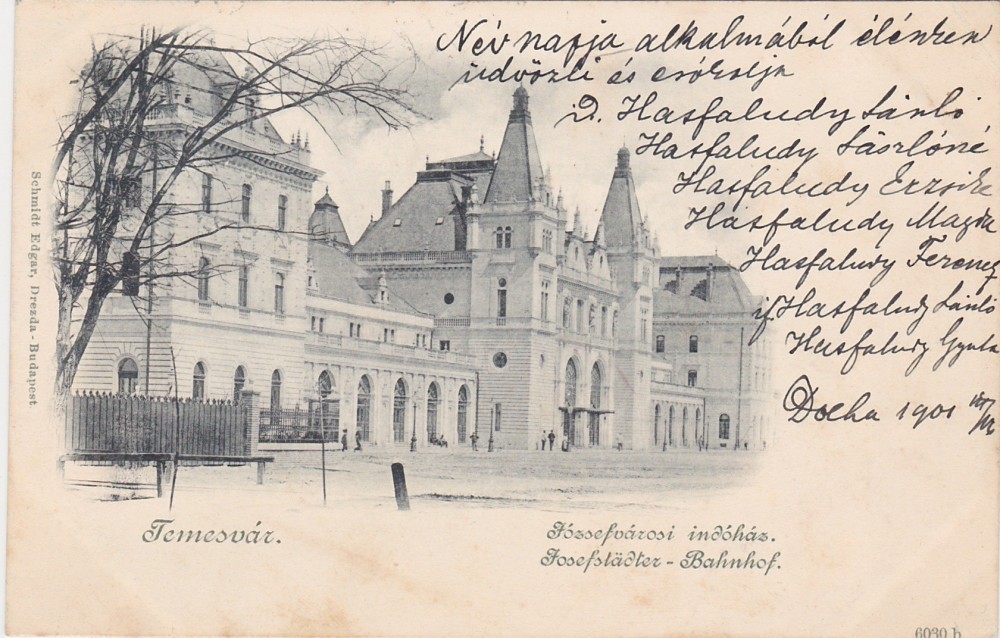 Név napja alkalmából élénken
üdvözli és csókolja
D. Hasfaludy Sánló
Hasfaludy Lászlóné
Hasfaludy Erzsike
Hasfaludy Magda
Hasfaludy Ferencz
if Hasfaludy Sánló
Hasfaludy Gyula
Dolha 1901
Schmidt Edgar, Drezda - Budapest
Temesvár.
Józsefvárosi indóház.
Josefstädter - Bahnhof.
6030 b